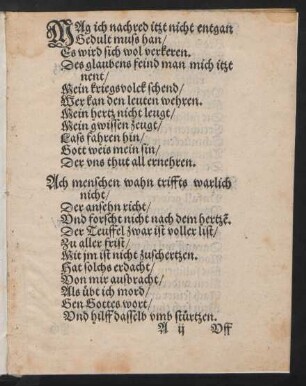 MAg ich nachred itzt nicht entgan
Gedult muſs han/
Es wird ſich wol verkeren.
Des glaubens feind man mich itzt
nent/
Mein kriegsvolck ſchend/
Wer kan den leuten wehren.
Mein hertz nicht leugt/
Mein gwiſſen zeugt/
Laſs fahren hin/
Gott weis mein ſin/
Der vns thut all ernehren.
Ach menſchen wahn triffts warlich
nicht/
Der anſehn richt/
Vnd forſcht nicht nach dem hertzē.
Der Teuffel zwar iſt voller liſt/
Zu aller friſt/
Mit jm iſt nicht zuſchertzen.
Hat ſolchs erdacht/
Von mir auſbracht/
Als übt ich mord/
Gen Gottes wort/
Vnd hilff daſſelb vmb ſtürtzen.
A ij Off